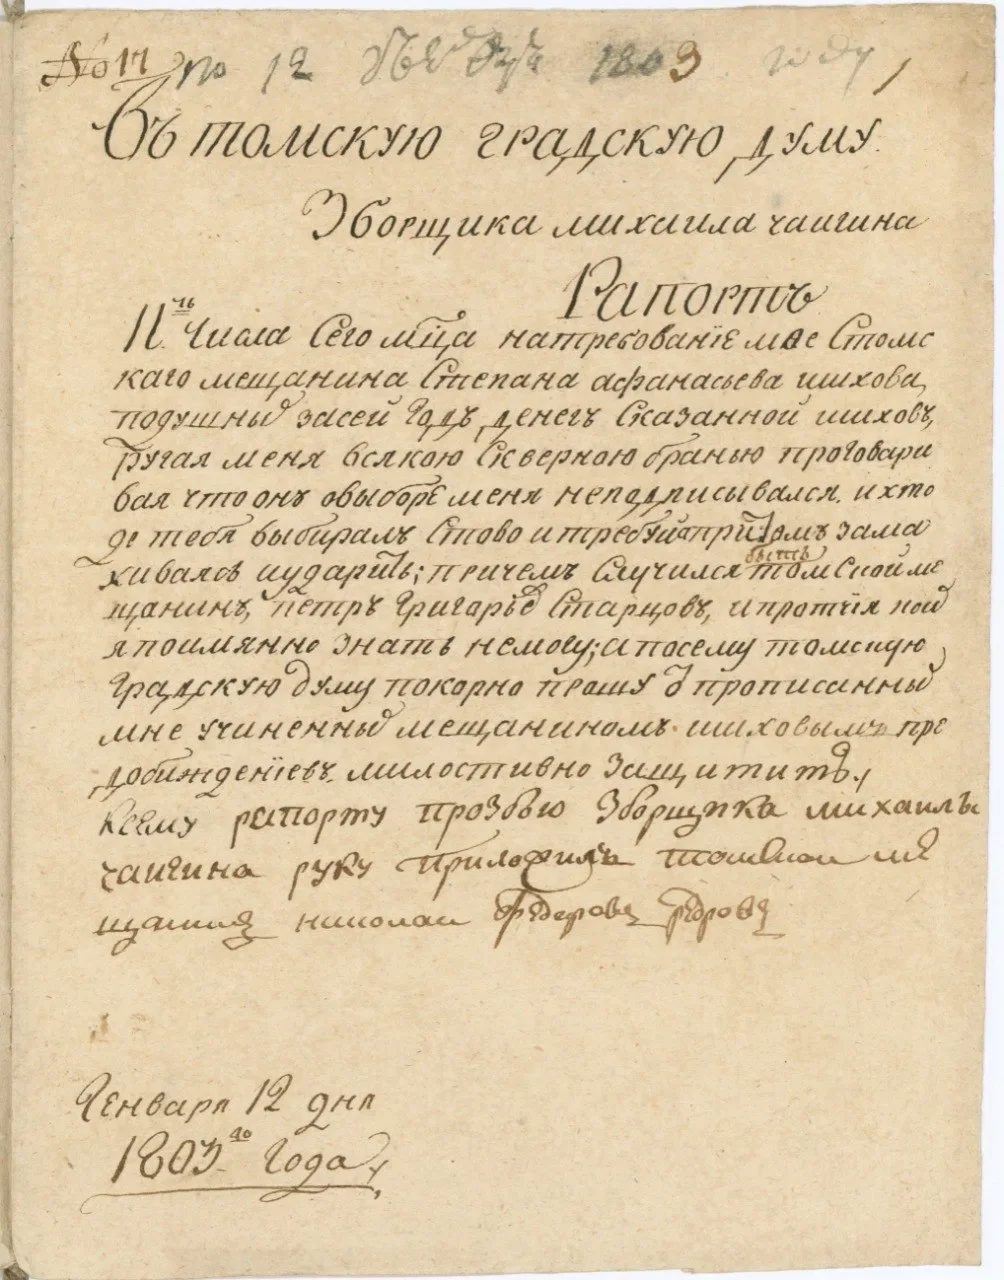 № 17 по 12 1803 году
Въ томскую градскую думу
Зборщика михаила чаигина
Рапортъ
11.чь числа Сего мца на требование мое Стомс
каго мещанина Степана афанасьева шихова,
подушны засей годъ денегъ Сказанной шиховъ,
ругая меня всякою Скверною бранью проговари
вая что онъ овыборе меня неподписывался. ихто
де тебя выбиралъ Стово итребуй апритомъ зама
хивался иударить; причемъ Случился быть томской ме
щанинъ, петръ григарьв Старцовъ, ипротчия кои
я поимянно знать немогу; апосему томскую
градскую думу покорно прошу в прописанны
мне учиненны мещаниномъ шиховымъ пре
добиждениевъ милостивно защитить./
Ксему рапорту прозбою Зборщика михаилы
чаигина руку приложилъ томской ме
щанин николаи Федоров
Генваря 12 дня
1803.го года